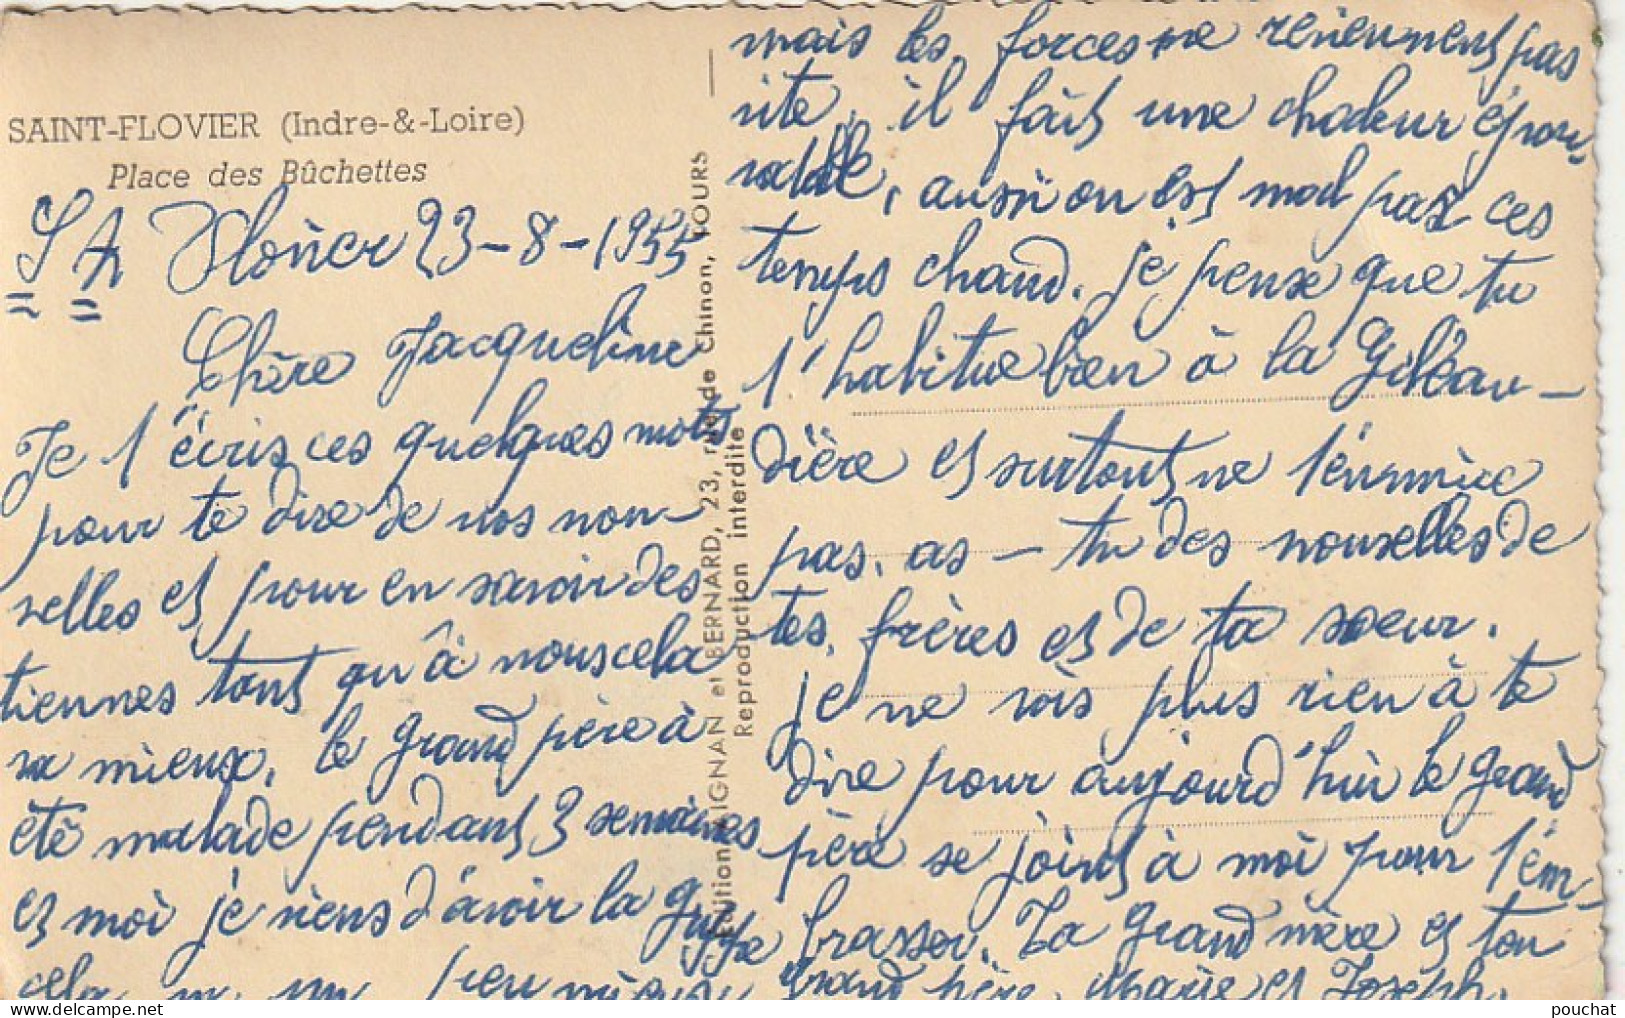 SAINT-FLOVIER (Indre-&-Loire)
Place des Bûchettes
St Flovier 23-8-1955
Chère Jacqueline
Je t'écris ces quelques mots
pour te dire de nos nou-
velles et pour en savoir des
tiennes tant qu'à nous cela
va mieux. le grand père à
été malade pendant 3 semaines
et moi je viens d'avoir la grippe
cela va un peu mieux
mais les forces ne reviennent pas
vite, il fait une chaleur épou-
vatable, aussi on est mal par ces
temps chaud. je pense que tu
t'habitue bien à la Giléau-
dière et surtout ne t'ennuie
pas. as-tu des nouvelles de
tes frères et de ta soeur.
je ne vois plus rien à te
dire pour aujourd'hui le grand
père se joint à moi pour t'em-
brasser. Ta grand mère et ton
grand père, Marie et Joseph.
Edition AIGNAN et BERNARD, 23, rue de Chinon, TOURS
Reproduction interdite
pouchat